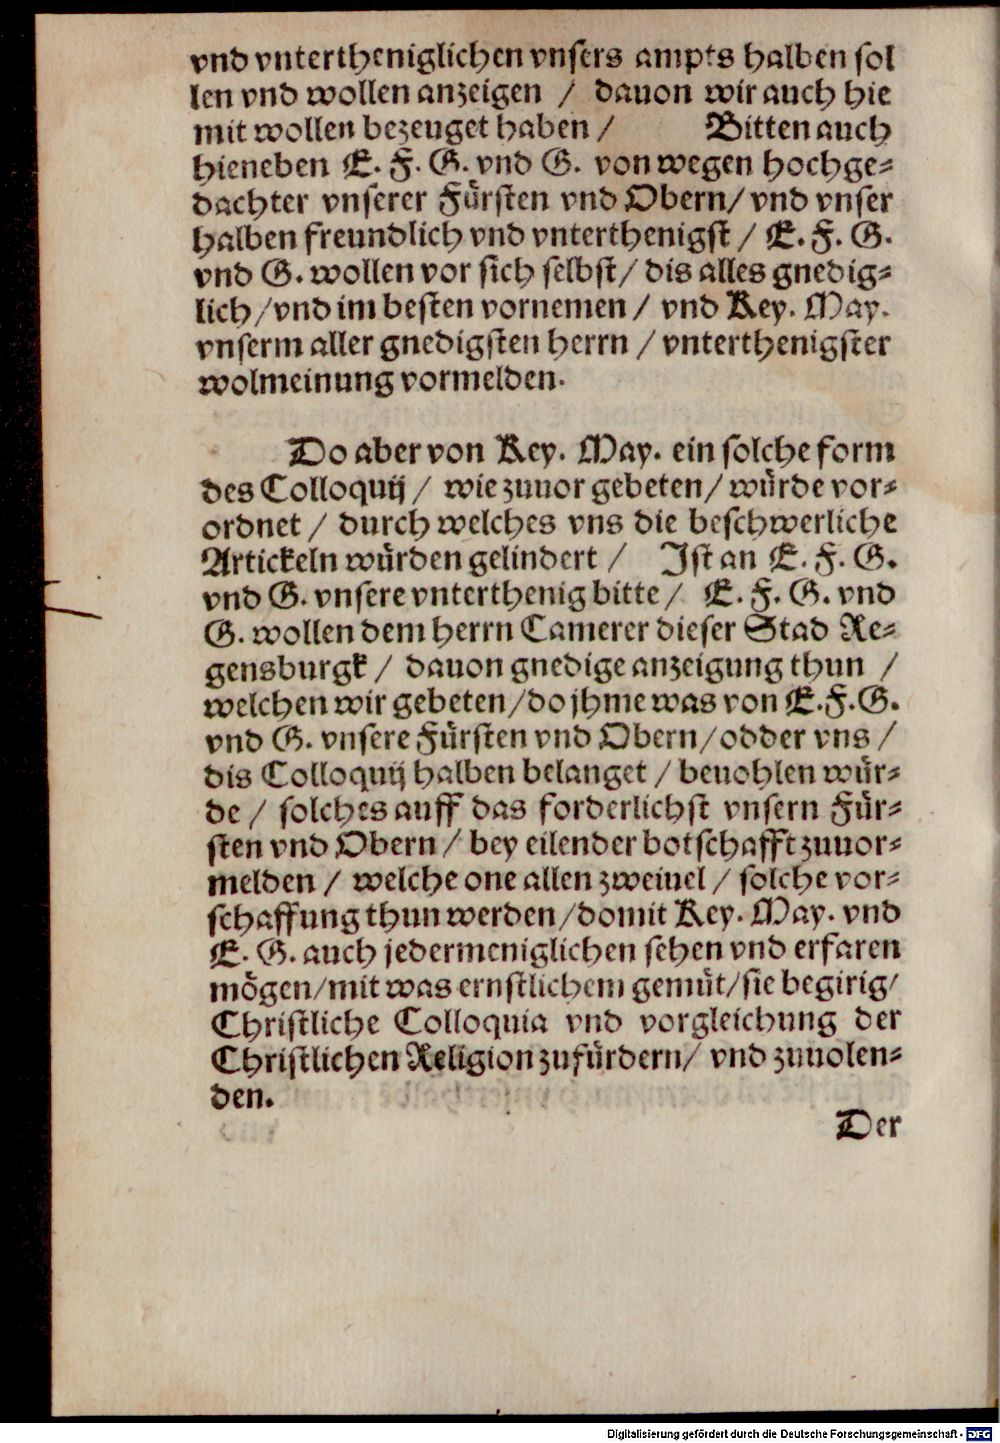 vnd vntertheniglichen vnsers ampts halben sol
len vnd wollen anzeigen / dauon wir auch hie
mit wollen bezeuget haben / Bitten auch
hieneben E. F. G. vnd G. von wegen hochge⸗
dachter vnserer Fürsten vnd Obern/ vnd vnser
halben freundlich vnd vnterthenigst / E. F. G.
vnd G. wollen vor sich selbst/ dis alles gnedig⸗
lich /vnd im besten vornemen / vnd Key. May.
vnserm aller gnedigsten herrn / vnterthenigster
wolmeinung vormelden.
Do aber von Key. May. ein solche form
des Colloquij / wie zuuor gebeten/ würde vor⸗
ordnet / durch welches vns die beschwerliche
Artickeln würden gelindert / Ist an E. F. G.
vnd G. vnsere vnterthenig bitte / E. F. G. vnd
G. wollen dem herrn Camerer dieser Stad Re⸗
gensburgk / dauon gnedige anzeigung thun /
welchen wir gebeten/do jhme was von E.F.G.
vnd G. vnsere Fürsten vnd Obern/odder vns /
dis Colloquij halben belanget / beuohlen wür⸗
de / solches auff das forderlichst vnsern Für⸗
sten vnd Obern / bey eilender botschafft zuuor⸗
melden / welche one allen zweiuel / solche vor⸗
schaffung thun werden /domit Key. May. vnd
E. G. auch jedermeniglichen sehen vnd erfaren
mögen/mit was ernstlichem gemüt/sie begirig/
Christliche Colloquia vnd vorgleichung der
Christlichen Religion zufürdern/ vnd zuuolen⸗
den.
Der
Digitalisierung gefördert durch die Deutsche Forschungsgemeinschaft - DFG